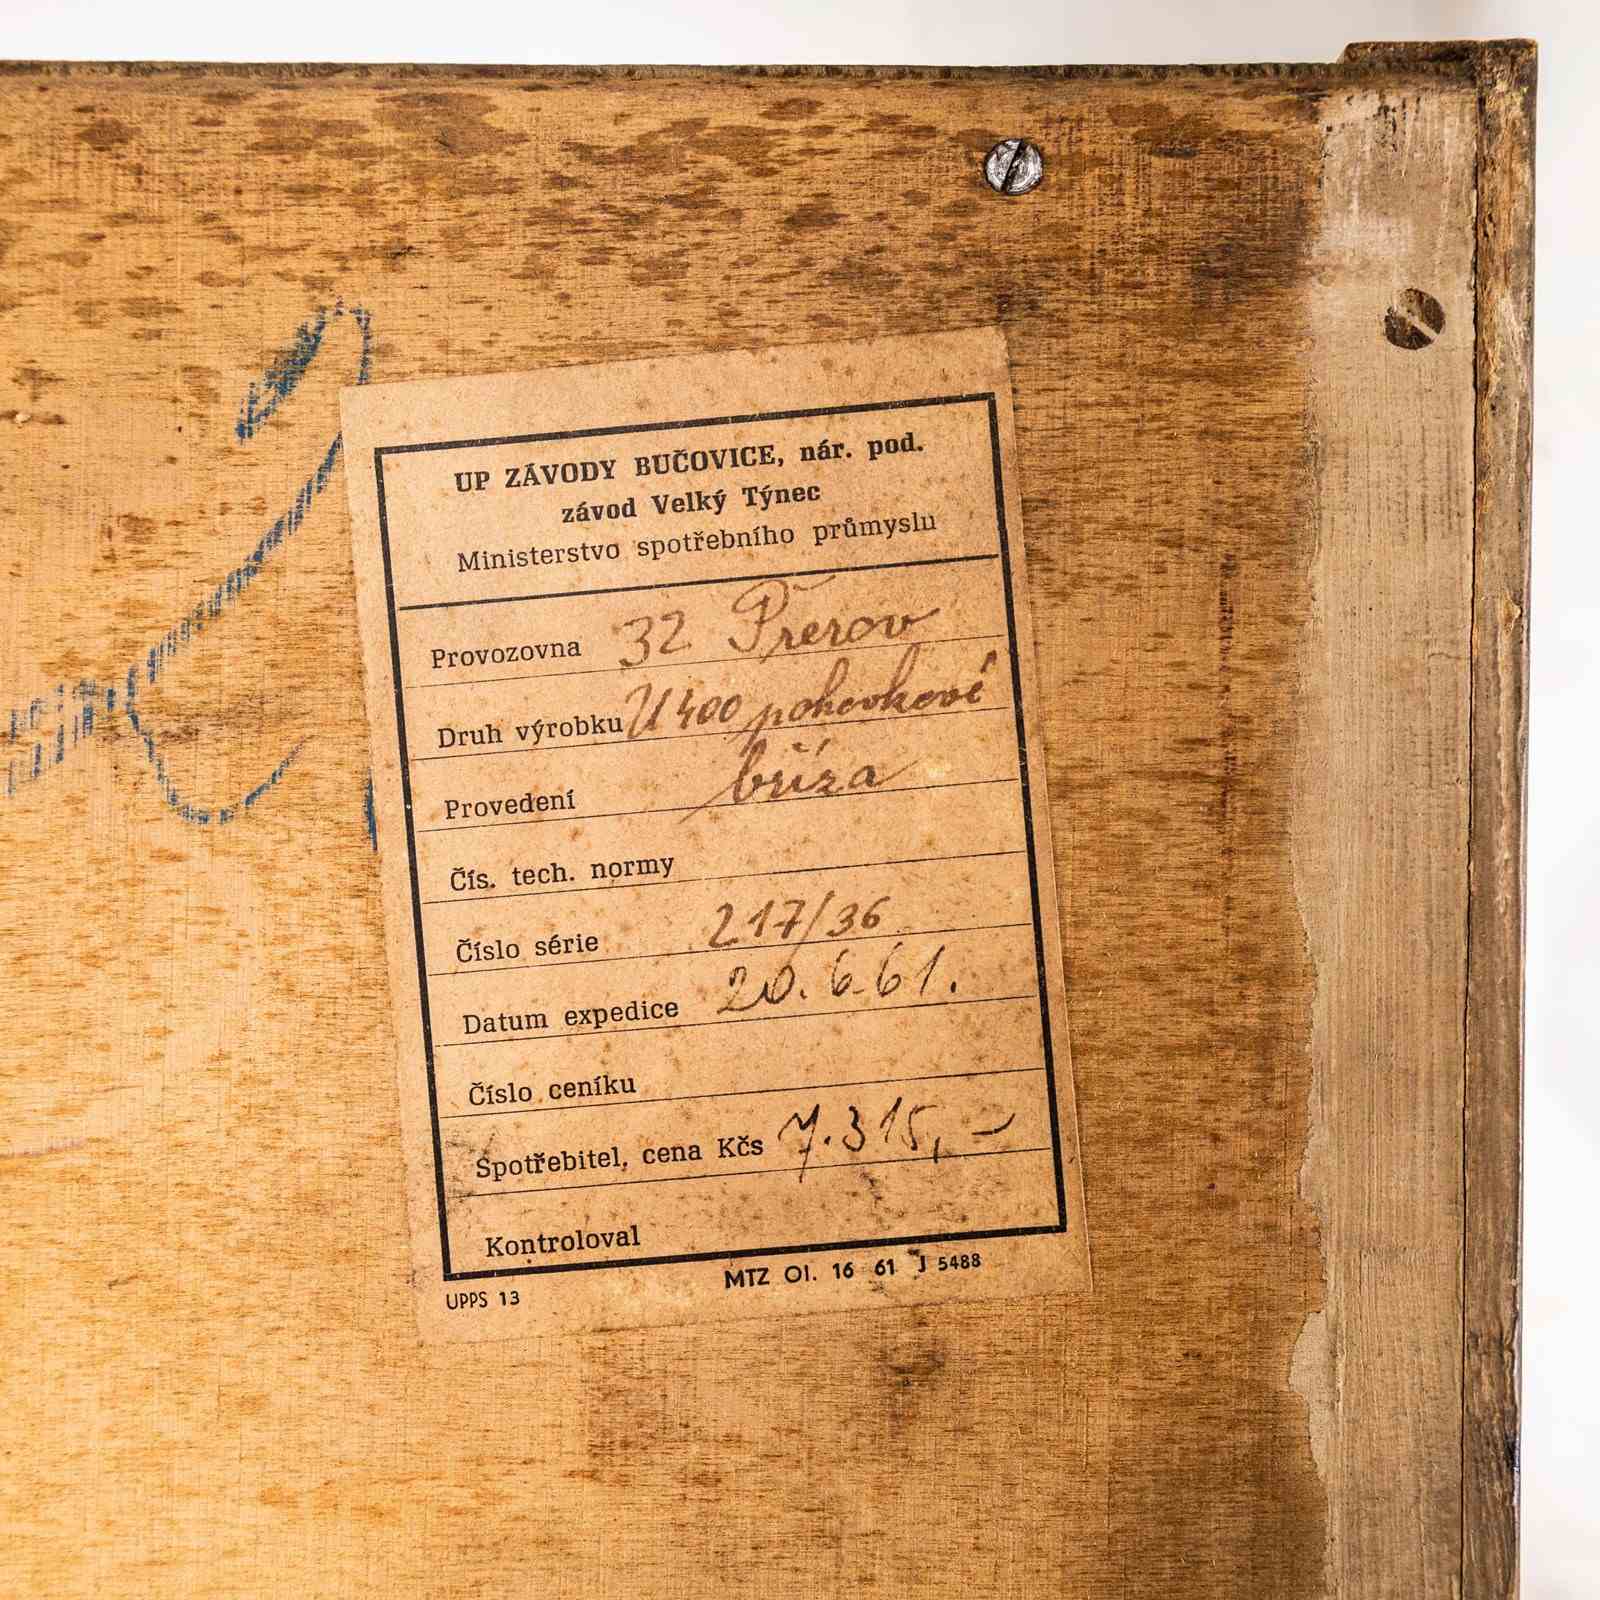 UP ZÁVODY BUČOVICE, nár. pod.
závod Velký Týnec
Ministerstvo spotřebního průmyslu
Provozovna 32 Přerov
Druh výrobku U 400 pohovkové
Provedení bříza
Čís. tech. normy
Číslo série 217/36
Datum expedice 20. 6. 61.
Číslo ceníku
Spotřebitel, cena Kčs 7.315,-
Kontroloval
UPPS 13 MTZ Ol. 16 61 J 5488